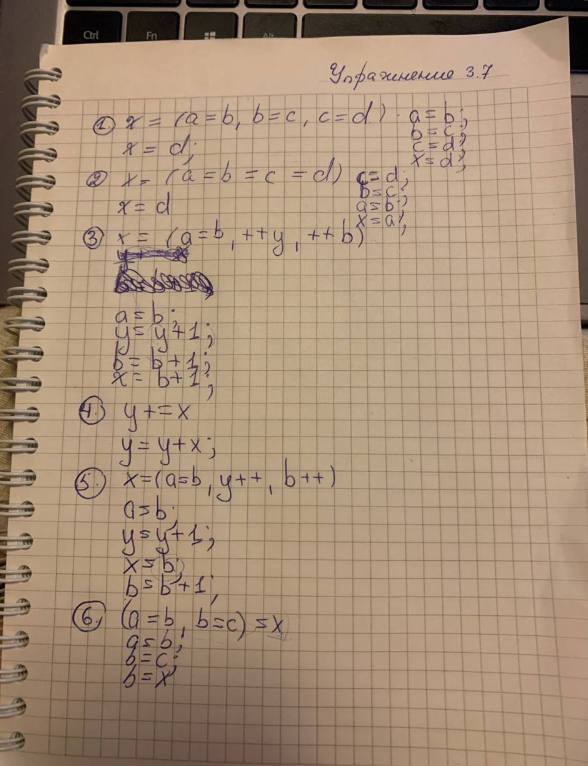 Ctrl
Fn
Alt
Упражнение 3.7
1. x = (a=b, b=c, c=d)
a=b;
b=c;
c=d;
x=d;
x = d;
2 x = (a=b=c=d)
c=d;
b=c;
a=b;
x=a;
x=d
3 x = (a=b, ++y, ++b)
a=b;
y=y+1;
b=b+1;
x=b+1;
4. y+=x
y=y+x;
5. x=(a=b, y++, b++)
a=b;
y=y+1;
x=b;
b=b+1;
6. (a=b, b=c)=x
a=b;
b=c;
b=x